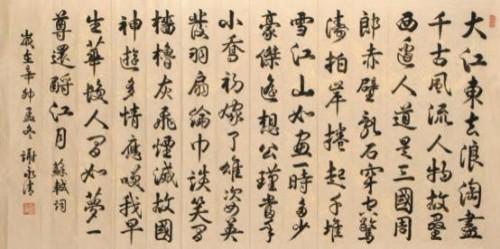 大江東去浪淘盡
千古風流人物故壘
西邊人道是三國周
郎赤壁亂石穿空驚
濤拍岸捲起千堆
雪江山如畫一時多少
豪傑遙想公瑾當年
小喬初嫁了雄姿英
發羽扇綸巾談笑間
檣櫓灰飛煙滅故國
神遊多情應笑我早
生華髮人間如夢一
尊還酹江月 蘇軾詞
歲在辛卯孟冬 謝